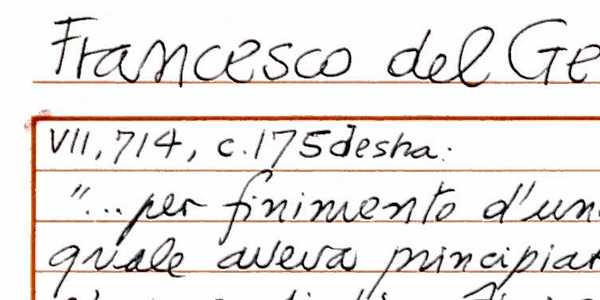 Francesco del Ge
VII, 714, c. 175 destra:
"... per finimento d'un
quale aveva principiat